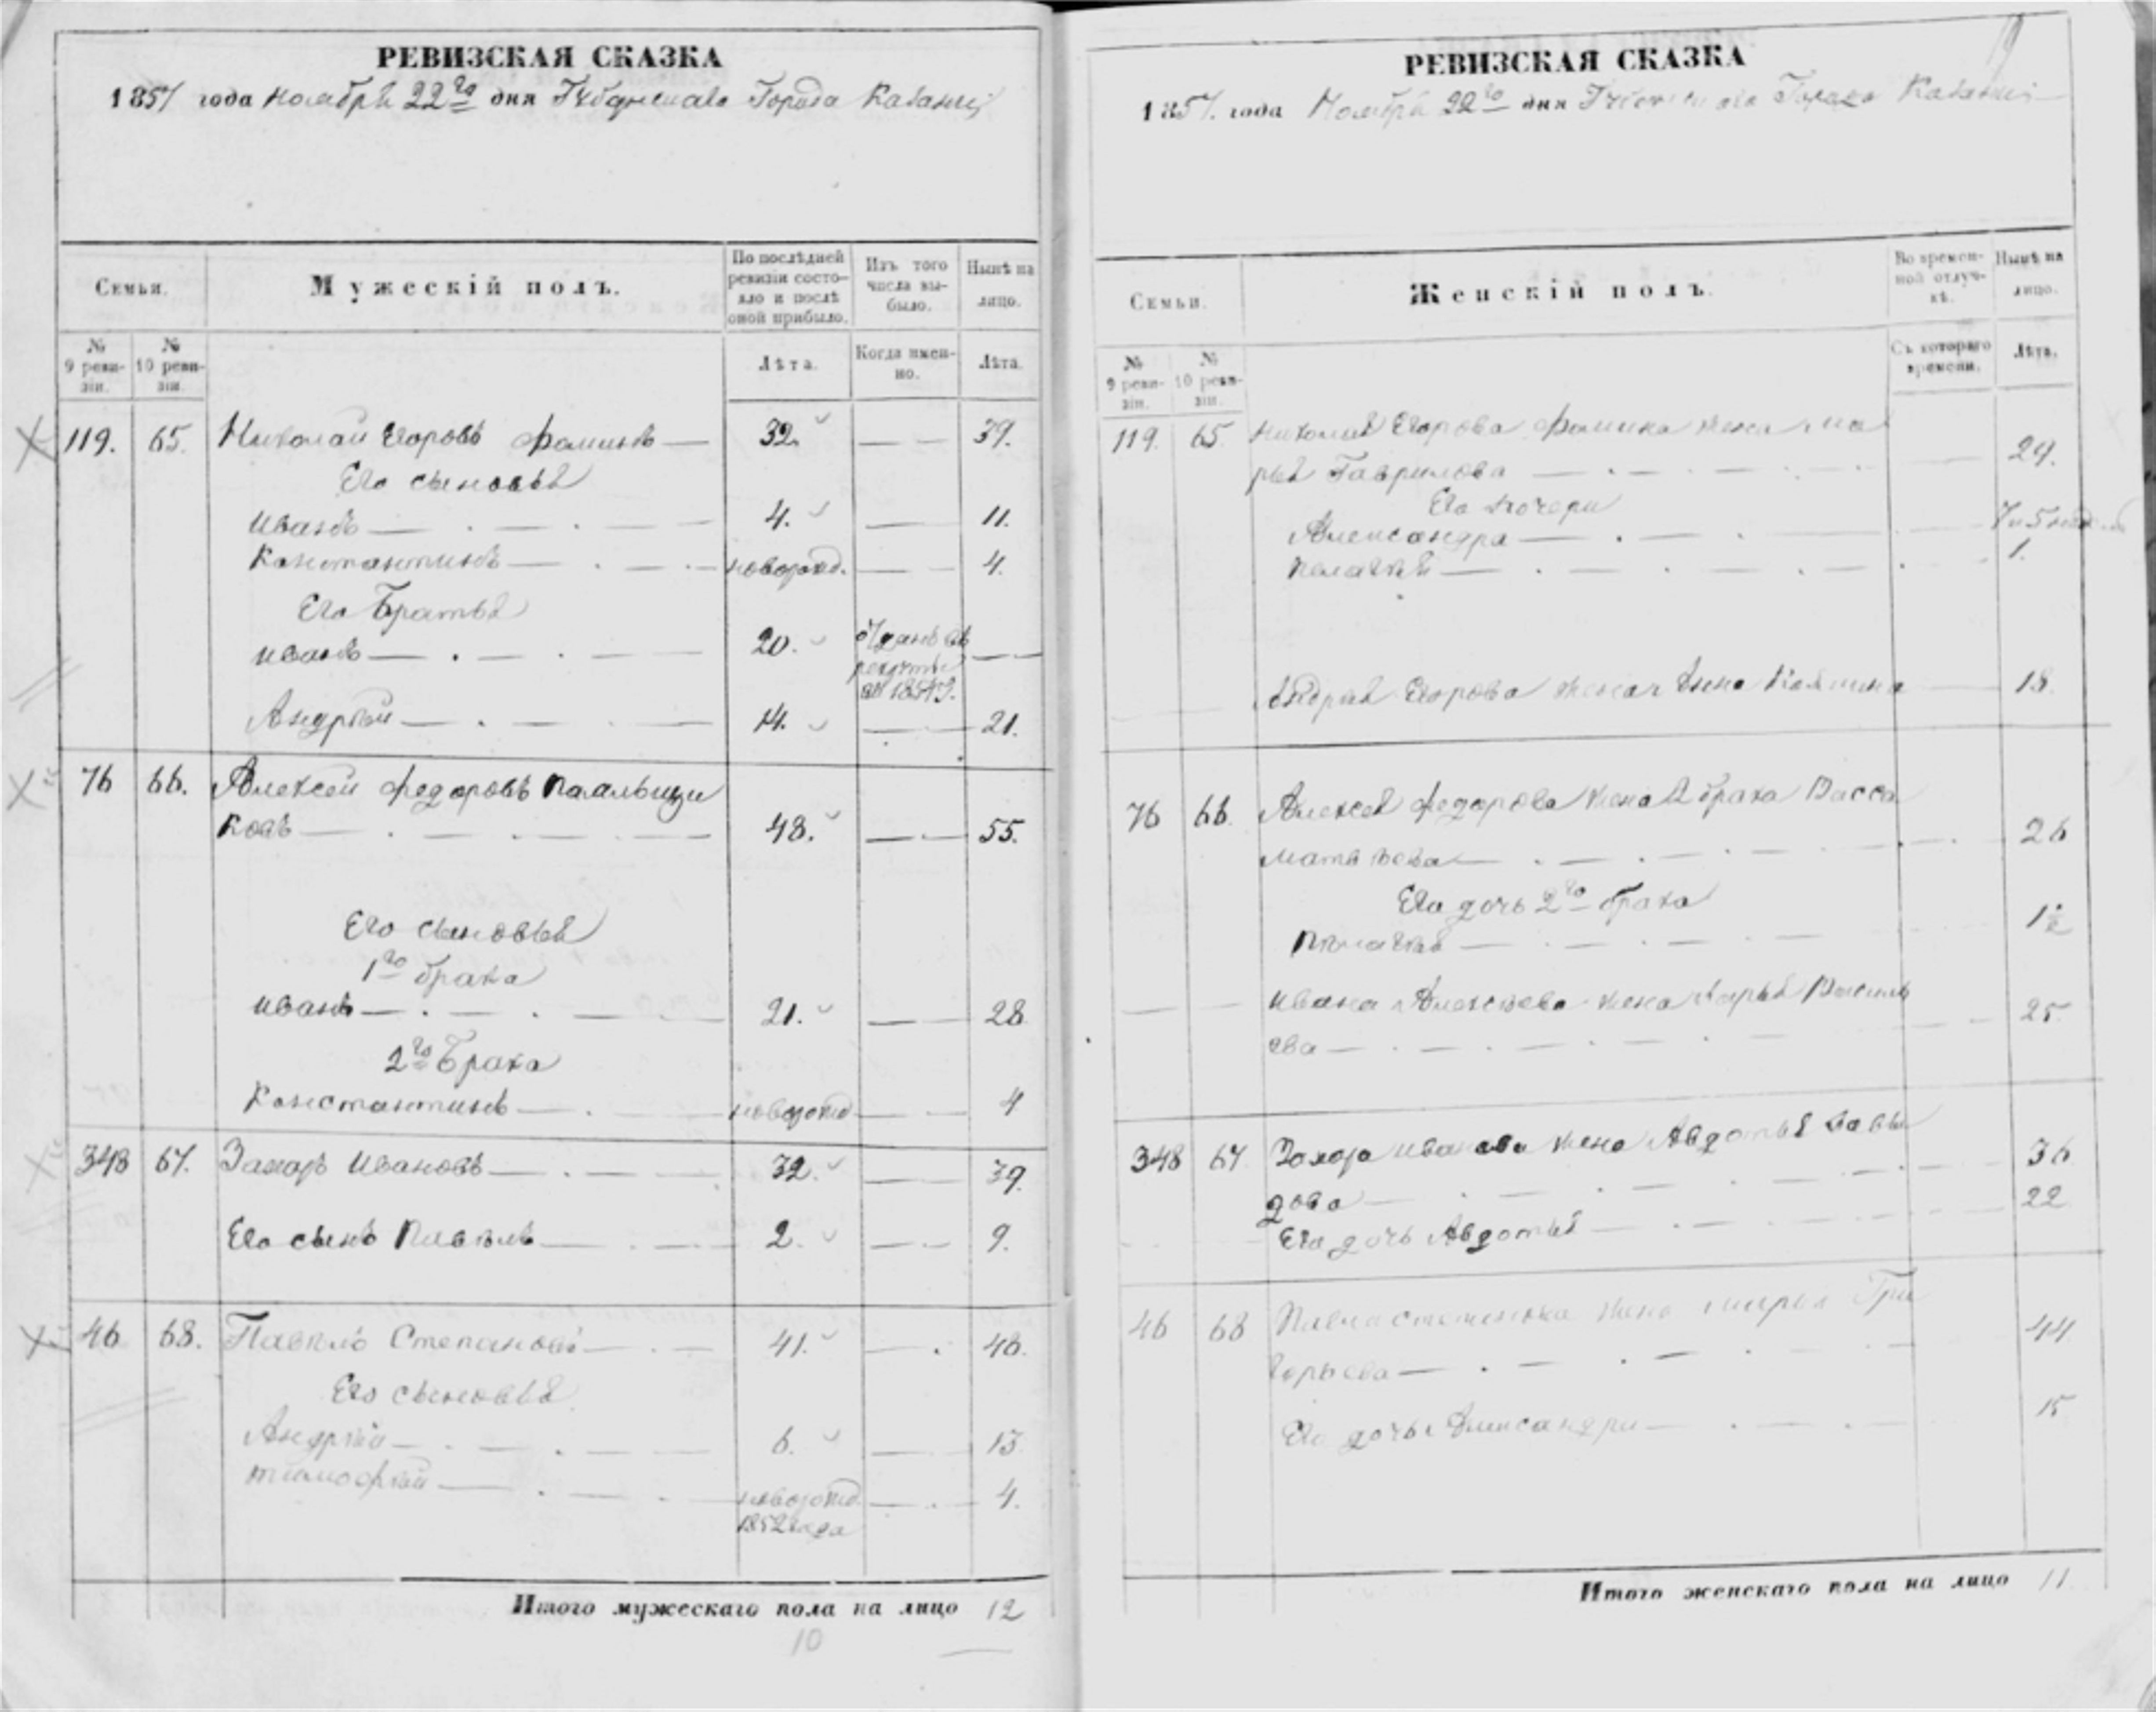 РЕВИЗСКАЯ СКАЗКА
1857 года Ноября 22го дня Губернскаго Города Казани
Семьи.
Мужескій полъ.
По послѣдней ревизіи состояло и послѣ оной прибыло.
Изъ того числа выбыло.
Нынѣ на лицо.
№ 9 ревизіи.
№ 10 ревизіи.
Лѣта.
Когда именно.
Лѣта.
119. 65. Николай Егоровъ Фоминъ — 32. — 39.
Его сыновья
Иванъ — 4. — 11.
Константинъ — новорожд. — 4.
Его Братья
Иванъ — 20. отданъ въ рекруты въ 185 —
Андрей — 14. — 21.
76 66. Алексей Федоровъ
ковъ — 48. — 55.
Его сыновья
1го брака
Иванъ — 21. — 28
2го Брака
Константинъ — новорожд — 4
348 67. Захаръ Ивановъ — 32. — 39.
Его сынъ Павелъ — 2. — 9.
46 68. Павелъ Степановъ — 41. — 48.
Его сыновья
Андрей — 6. — 13
Тимофей — новорожд. 1852 года — 4.
Итого мужескаго пола на лицо 12
10
19
РЕВИЗСКАЯ СКАЗКА
1857. года Ноября 22го дня Губернскаго Города Казани
Семьи.
Женскій полъ.
Во временной отлучкѣ.
Нынѣ на лицо.
№ 9 ревизіи.
№ 10 ревизіи.
Съ котораго времени.
Лѣта.
119. 65 Николая Егорова Фомина жена Ма
рья Гаврилова — 29.
Его дочери
Александра — 7 и 5
Пелагея — 1.
Андрея Егорова жена — 18.
76 66. Алексея Федорова жена 2 брака Васса
Матвѣева — 26
Его дочь 2го брака
Пелагея — 1½
Ивана Алексѣева жена Марья Василь
ева — 25.
348 67 Захара Иванова жена Авдотья Давы
дова — 36
Его дочь Авдотья — 22
46 68 Павла Степанова жена Марья Гри
горьева — 44
Его дочь Александра — 15
Итого женскаго пола на лицо 11